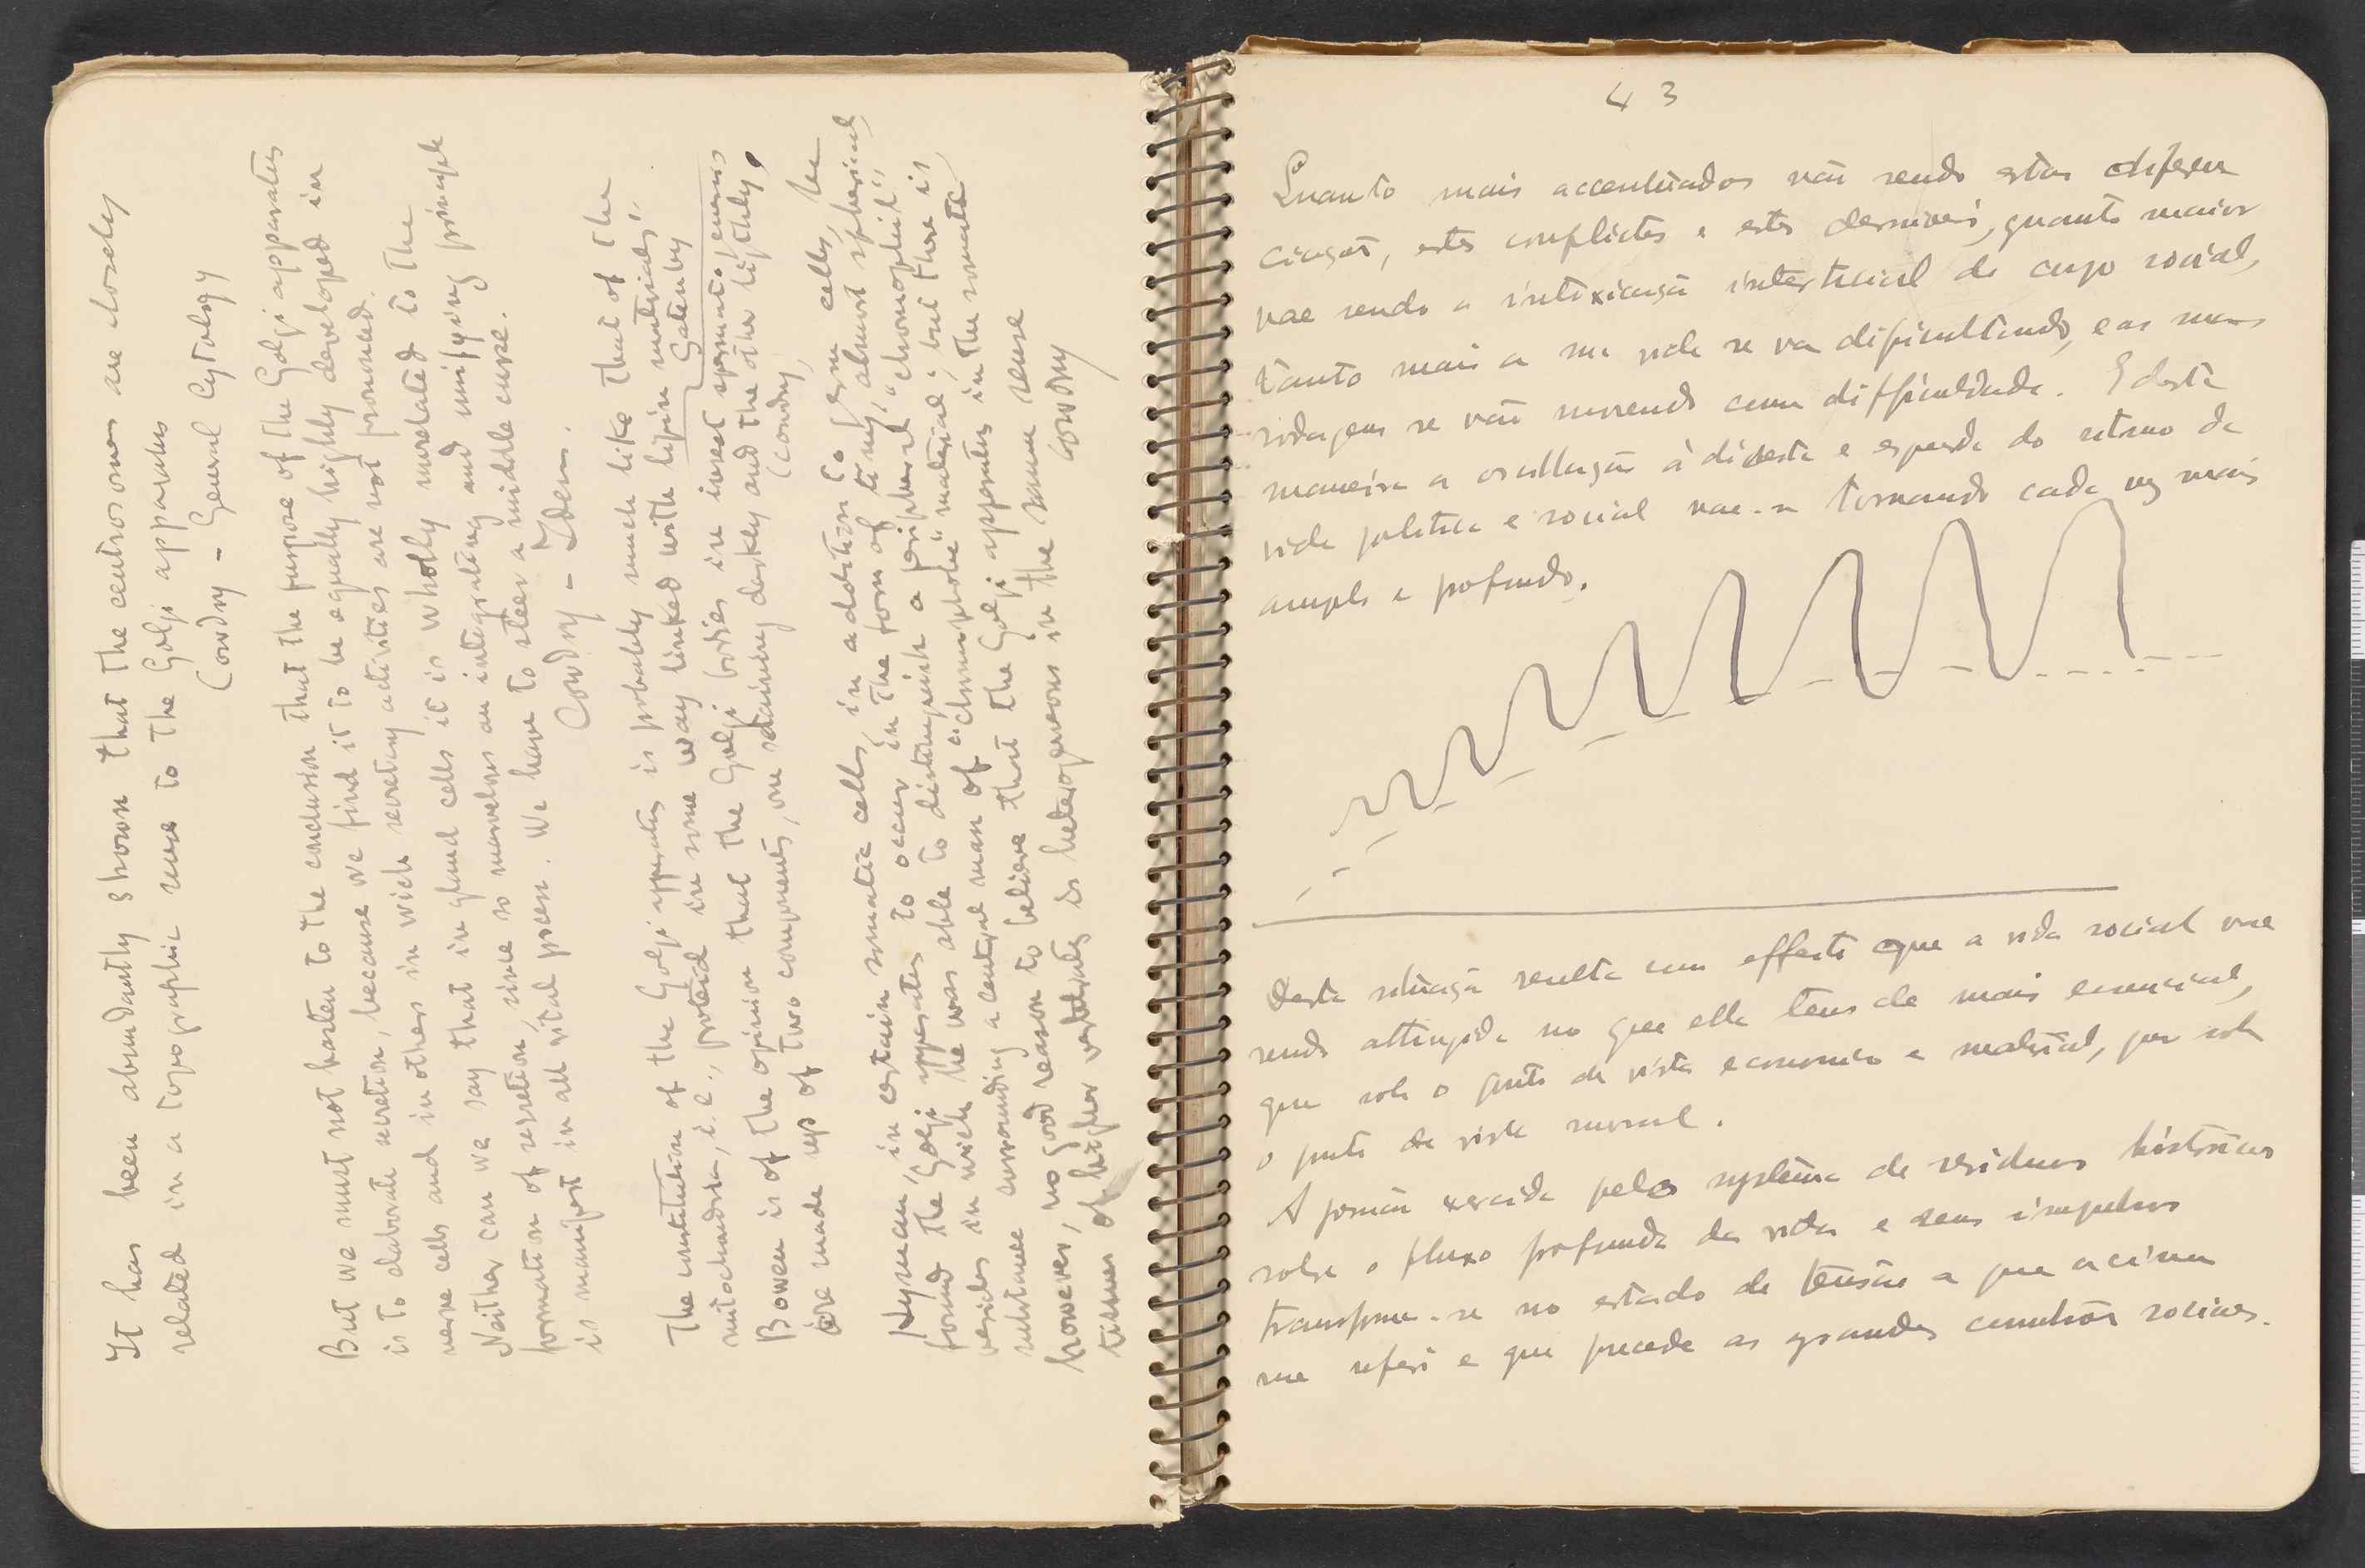 It has been abundantly shown that the centrosomes are closely
related in a topographic sense to the Golgi apparatus
Cowdry - General Cytology
But we must not hasten to the conclusion that the purpose of the Golgi apparatus
is to elaborate secretion, because we find it to be equally highly developed in
nerve cells and in others in wich secretary activities are not pronounced.
Neither can we say that in gland cells it is wholly unrelated to the
formation of secretion, since so marvelous an integrating and unifying principle
is manifest in all vital process. We have to steer a middle curse.
Cowdry - Idem.
The constitution of the Golgi apparatus is probably much like that of the
mitochondria, i.e., proteid in some way linked with lipin materials".
Gatenby
Bowen is of the opinion that the Golgi bodies in insect spermatocytes
are made up of two components, one staining darkey and the other lightly,
(Cowdry)
Hyman, in certain somatic cells, in addition to germ cells, he
found the Golgi apparatus to occur in the form of tiny, almost spherical
vesicles in wich he was able to distinguish a peripheral, "chromophil",
substance surrounding a central mass of "chromophobe" material; but there is,
however, no good reason to believe that the Golgi apparatus in the somatic
tissues of higher vertebrates is heterogeneous in the same sense
Cowdry
43
Quanto mais accentuados vaũ sendo estas diferen
ciaçoẽs, estes conflictos e estes desniveis, quanto maior
vae sendo a intoxicaçã intersticial do corpo social,
tanto mais a sua vida se va dificultando, e as suas
rodagens se vaũ movendo com difficuldade. E desta
maneira a oscillaçaũ à direita e esquerda do ritmo da
vida politica e social vae-se tornando cada vez mais
ampla e profunda.
Desta situaçã resulta com effeito que a vida social vae
sendo attingida no que ella tem de mais essencial,
quer sob o ponto de vista economico e material, quer sob
o ponto de vista moral.
A pressaũ exercida pelo systema de residuos históricos
sobre o fluxo profundo da vida e seus impulsos
transforma-se no estado de tensão a que acima
me referi e que precede as grandes comutçoẽs sociaes.